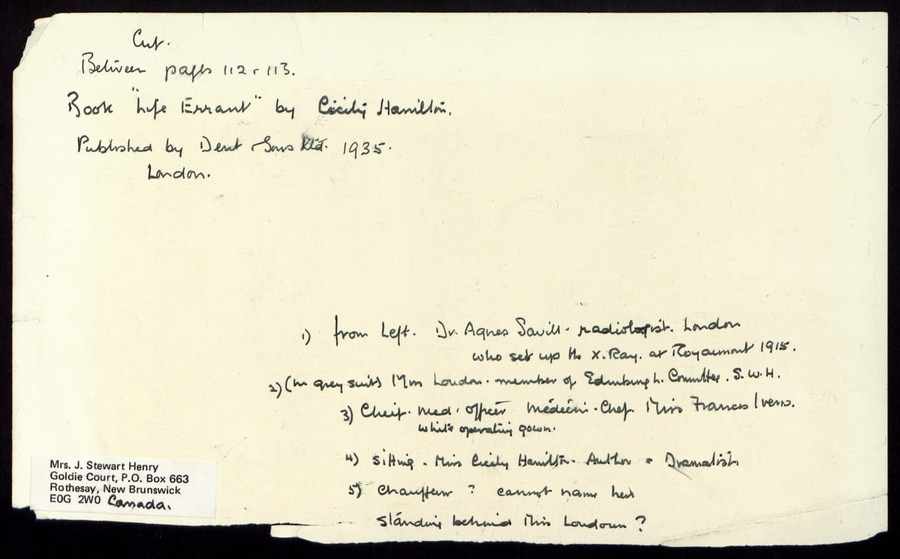 Cut.
Between pages 112 & 113.
Book "Life Errant" by Cicily Hamilton.
Published by Dent & Sons Ltd. 1935.
London.
1) from Left. Dr. Agnes Savill - radiologist. London
who set up the X.Ray. at Royaumont 1915.
2) (in grey suit) Miss Loudon. member of Edinburgh. Committee. S.W.H.
3) Cheif. med. officer Médécin-Chef. Miss Frances Ivens.
white operating gown.
4) Sitting. Miss Cicely Hamilton. Author & Dramatist
5) Chauffeur ? cannot name her
standing behind Miss Loudoun ?
Mrs. J. Stewart Henry
Goldie Court, P.O. Box 663
Rothesay, New Brunswick
E0G 2W0 Canada.